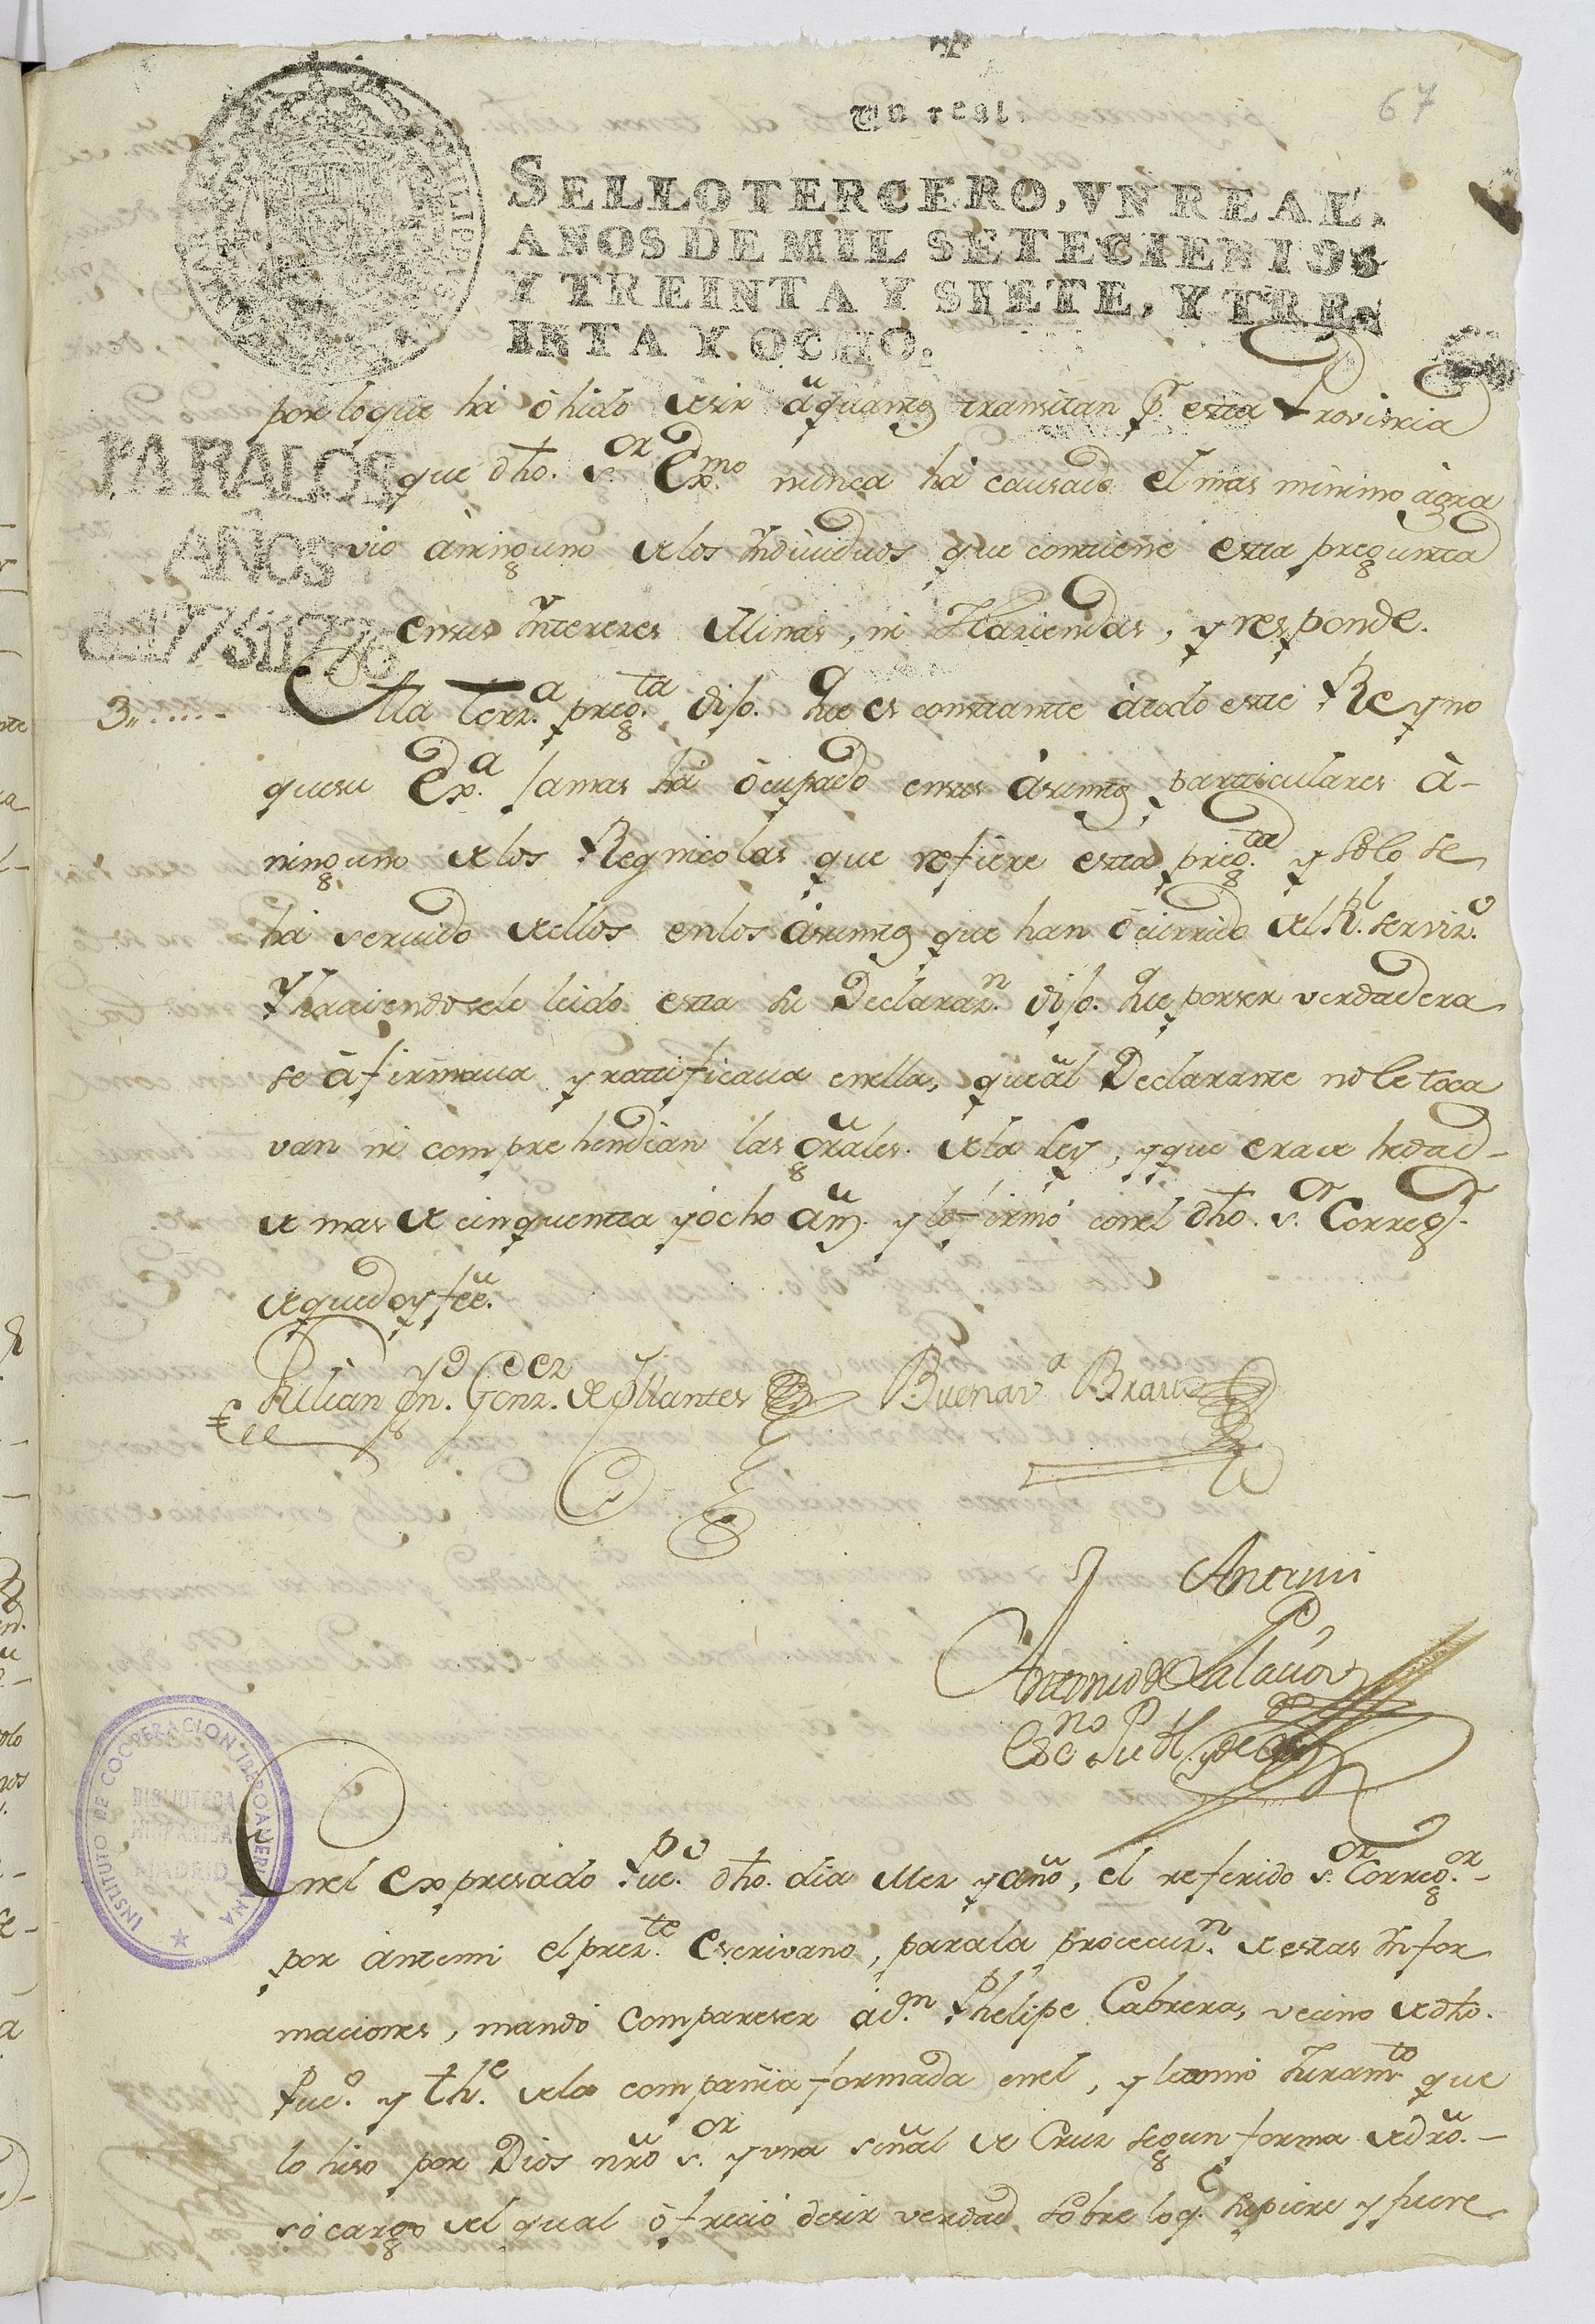 Un real.
67
SELLO TERCERO, VN REAL,
AÑOS DE MIL SETECIENTOS
Y TREINTA Y SIETE, Y TRE-
INTA Y OCHO.
por lo que há ôhido desir â quantos transitan pr. esta Provincia
PARA LOS
que dho. s.or Ex.mo nunca há causado el mas minimo ágra
AÑOS
vio áninguno delos Yndividuos que contiene esta pregunta
ensus Yntereses Minas, ni Haziendas, y responde.
3,,......
Ala terz.a preg.ta dijo. Que es constante átodo este Reyno
quesu Ex.a Jamas há ôcupado ensus Asumtos particulares à-
ninguno delos Regnicolas que refiere esta preg.ta y solo se
há servido dellos enlos ásumtos que han ôcurrido del R.l serviz.o
Y haviendosele leido esta su Declaraz.n dijo. Que porser verdadera
se âfirmava y ratificava enella, que âl Declarante nole toca
van ni comprehendian las grâles. dela Ley, y que erade hedad-
de mas de cinquenta yócho añs. y lo firmó conel dho. s.or Correg.or
de que doy feê.
Julian Ygn.o Gonz.ez de Yllantes
Buenav.a Bravo
Antemi
Antonio de Palacios
Esc.no Pubco.
INSTITUTO DE COOPERACION IBEROAMERICANA
BIBLIOTECA
HISPANICA
MADRID
Enel expresado Pue.o dho. dia Mes y año, el referido s.or Correg.or-
por ántemi el prez.te Escrivano, parala procecuz.n de estas Ynfor
maciones, mandó compareser ád.n Phelipe Cabrera, vecino de dho.
Pue.o y th.e dela compañia formada enel, y letomó Juram.to que
lo hiso por Dios nrô s.or y vna señal de Cruz segun forma de drô.-
só cargo del qual ôfreció desir verdad sobre loq.e supiere y fuere